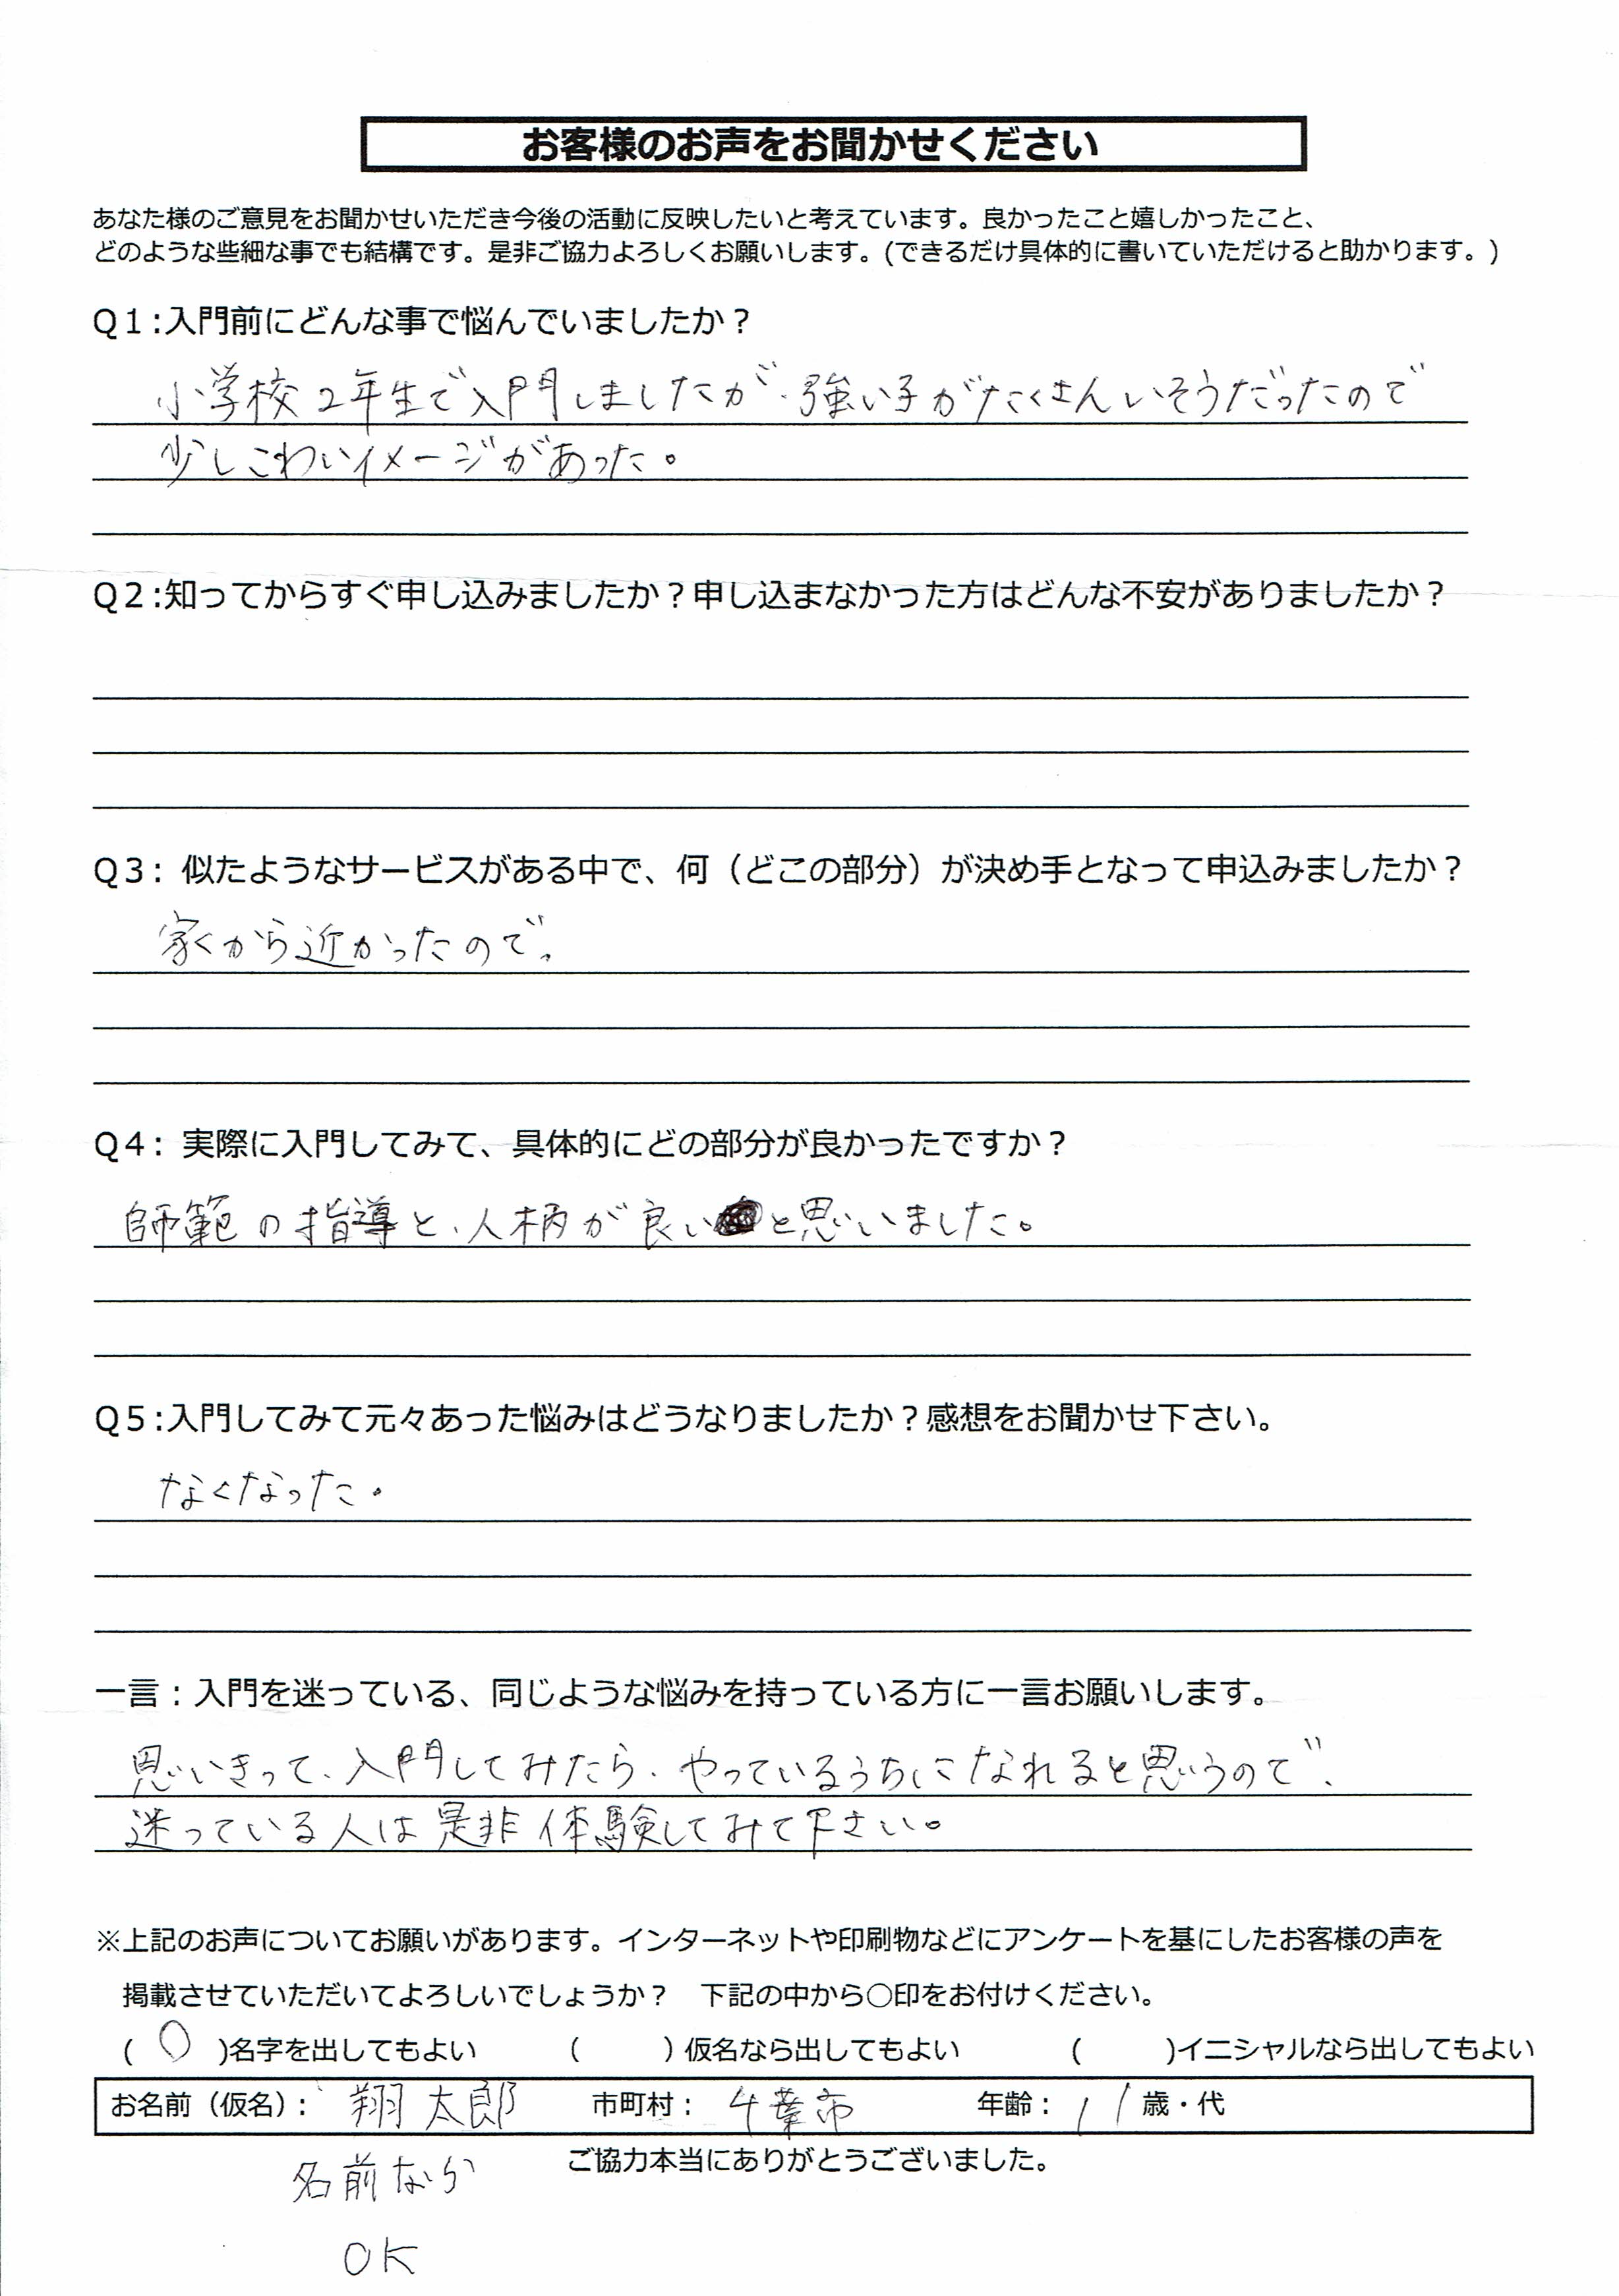 お客様のお声をお聞かせください
あなた様のご意見をお聞かせいただき今後の活動に反映したいと考えています。良かったこと嬉しかったこと、
どのような些細な事でも結構です。是非ご協力よろしくお願いします。(できるだけ具体的に書いていただけると助かります。)
Q1:入門前にどんな事で悩んでいましたか？
小学校2年生で入門しましたが、強い子がたくさんいそうだったので
少しこわいイメージがあった。
Q2:知ってからすぐ申し込みましたか？申し込まなかった方はどんな不安がありましたか？
Q3: 似たようなサービスがある中で、何（どこの部分）が決め手となって申込みましたか？
家から近かったので。
Q4: 実際に入門してみて、具体的にどの部分が良かったですか？
師範の指導と、人柄が良いと思いました。
Q5:入門してみて元々あった悩みはどうなりましたか？感想をお聞かせ下さい。
なくなった。
一言：入門を迷っている、同じような悩みを持っている方に一言お願いします。
思いきって、入門してみたら、やっているうちになれると思うので、
迷っている人は是非体験してみて下さい。
※上記のお声についてお願いがあります。インターネットや印刷物などにアンケートを基にしたお客様の声を
掲載させていただいてよろしいでしょうか？　下記の中から○印をお付けください。
( ○ )名字を出してもよい　(　　)仮名なら出してもよい　(　　)イニシャルなら出してもよい
お名前（仮名）： 翔太郎　市町村： 千葉市　年齢： 11歳・代
ご協力本当にありがとうございました。
名前なら
OK